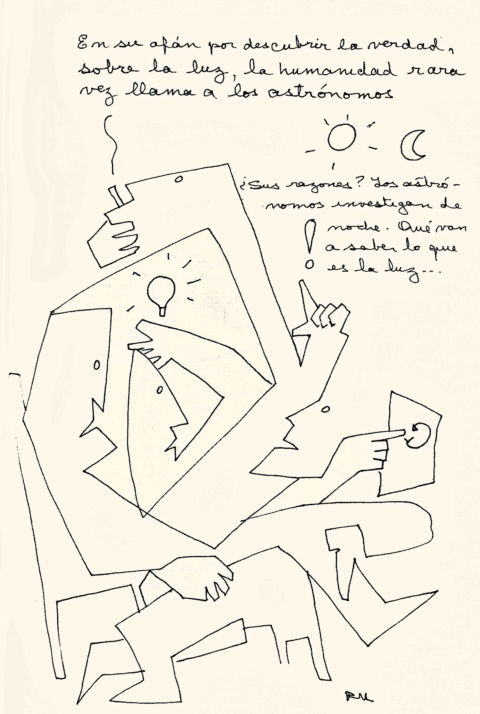 En su afán por descubrir la verdad,
sobre la luz, la humanidad rara
vez llama a los astrónomos
¿Sus razones? Los astró-
nomos investigan de
noche. Qué van
a saber lo que
es la luz...
RM